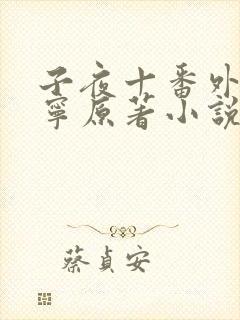 子夜十番外
寧原著小說
蔡貞安